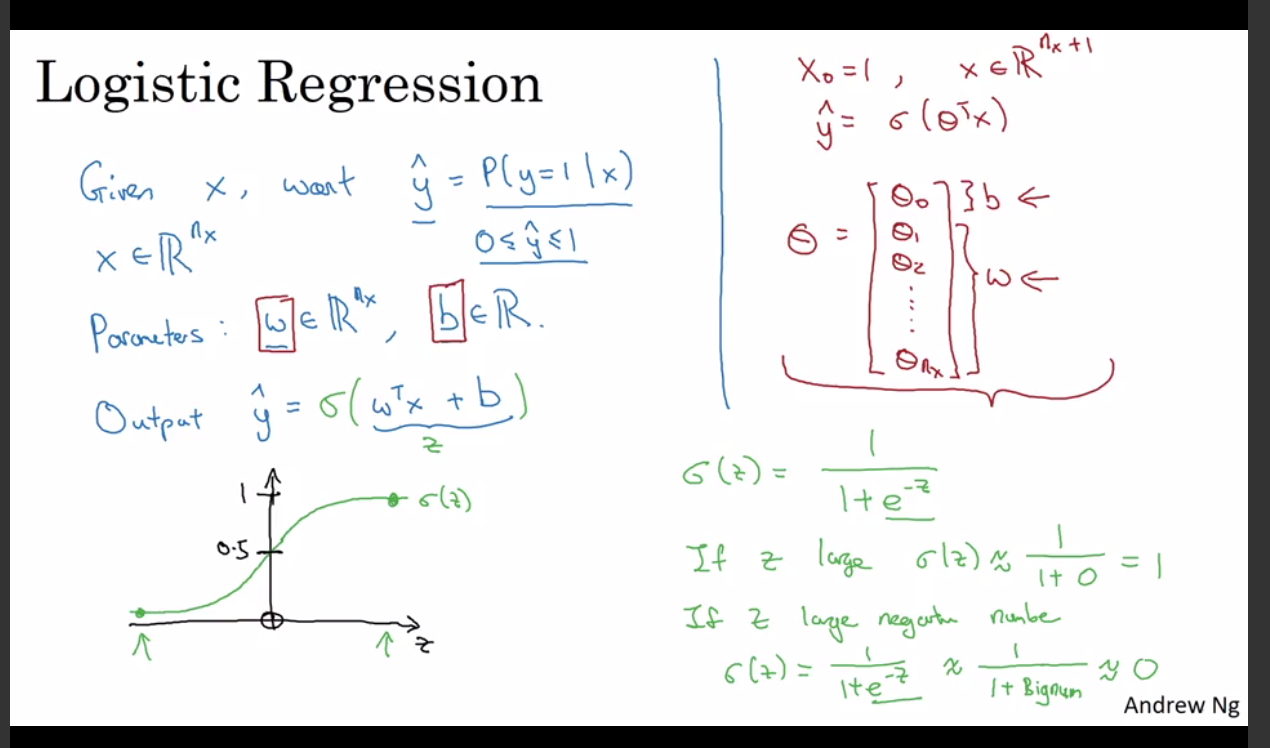 Logistic Regression
Given x, want ŷ = P(y=1|x)
0 ≤ ŷ ≤ 1
x ∈ ℝ^{n_x}
Parameters: w ∈ ℝ^{n_x}, b ∈ ℝ.
Output ŷ = σ(w^T x + b)
z
1
σ(z)
0.5
z
X_0 = 1, x ∈ ℝ^{n_x+1}
ŷ = σ(θ^T x)
θ = [θ_0 } b ←
θ_1
θ_2 } w ←
⋮
θ_{n_x}]
σ(z) = 1/(1+e^{-z})
If z large σ(z) ≈ 1/(1+0) = 1
If z large negative numbe
σ(z) = 1/(1+e^{-z}) ≈ 1/(1+Bignum) ≈ 0
Andrew Ng